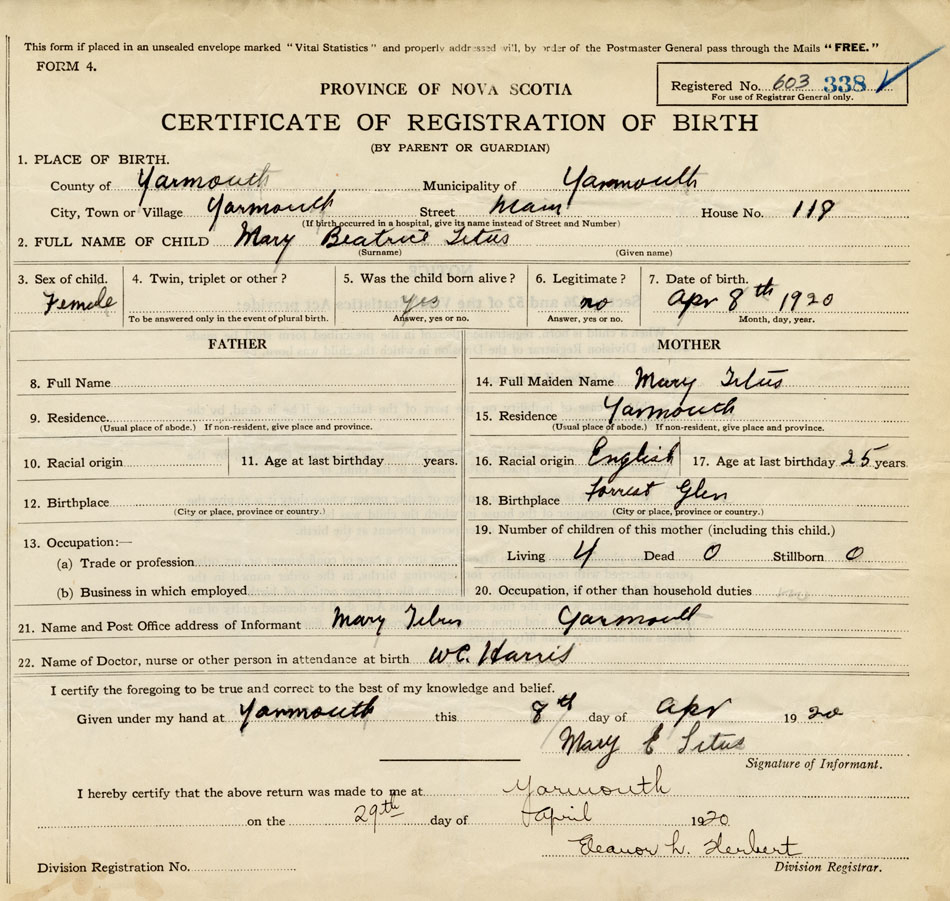 This form if placed in an unsealed envelope marked "Vital Statistics" and properly addressed will, by order of the Postmaster General pass through the Mails "FREE."
FORM 4.
Registered No. 603 338
For use of Registrar General only.
PROVINCE OF NOVA SCOTIA
CERTIFICATE OF REGISTRATION OF BIRTH
(BY PARENT OR GUARDIAN)
1. PLACE OF BIRTH.
County of Yarmouth Municipality of Yarmouth
City, Town or Village Yarmouth Street Main House No. 118
(If birth occurred in a hospital, give its name instead of Street and Number)
2. FULL NAME OF CHILD Mary Beatrice Titus
(Surname) (Given name)
3. Sex of child. 4. Twin, triplet or other? 5. Was the child born alive? 6. Legitimate? 7. Date of birth.
Female yes no Apr 8th 1920
To be answered only in the event of plural birth. Answer, yes or no. Answer, yes or no. Month, day, year.
FATHER MOTHER
8. Full Name 14. Full Maiden Name Mary Titus
9. Residence. 15. Residence Yarmouth
(Usual place of abode.) If non-resident, give place and province. (Usual place of abode.) If non-resident, give place and province.
10. Racial origin 11. Age at last birthday years. 16. Racial origin English 17. Age at last birthday 25 years
12. Birthplace 18. Birthplace Forrest Glen
(City or place, province or country.) (City or place, province or country.)
13. Occupation:— 19. Number of children of this mother (including this child.)
(a) Trade or profession Living 4 Dead 0 Stillborn 0
(b) Business in which employed 20. Occupation, if other than household duties
21. Name and Post Office address of Informant Mary Titus Yarmouth
22. Name of Doctor, nurse or other person in attendance at birth WC. Harris
I certify the foregoing to be true and correct to the best of my knowledge and belief.
Given under my hand at Yarmouth this 8th day of Apr 1920
Mary E Titus
Signature of Informant.
I hereby certify that the above return was made to me at Yarmouth
on the 29th day of April 1920
Eleanor L. Herbert
Division Registration No. Division Registrar.